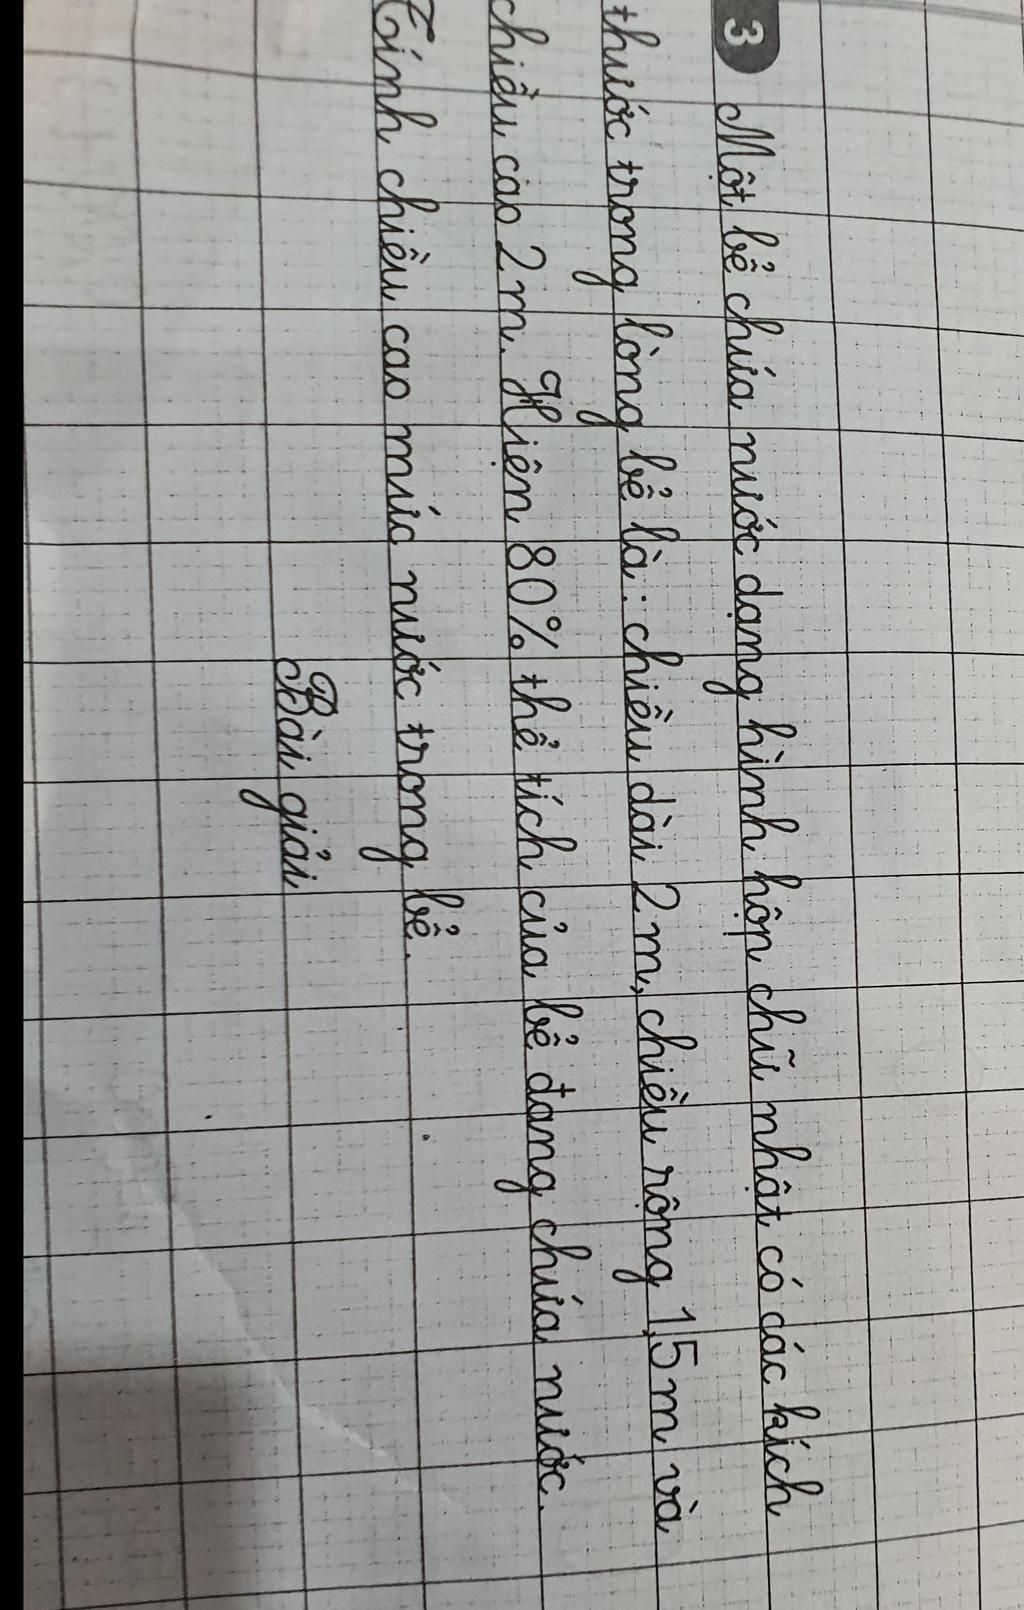 3 Một bể chứa nước dạng hình hộp chữ nhật có các kích
thước trong lòng bể là: chiều dài 2 m, chiều rộng 1,5 m và
chiều cao 2 m. Hiện 80% thể tích của bể đang chứa nước.
Tính chiều cao mức nước trong bể.
Bài giải